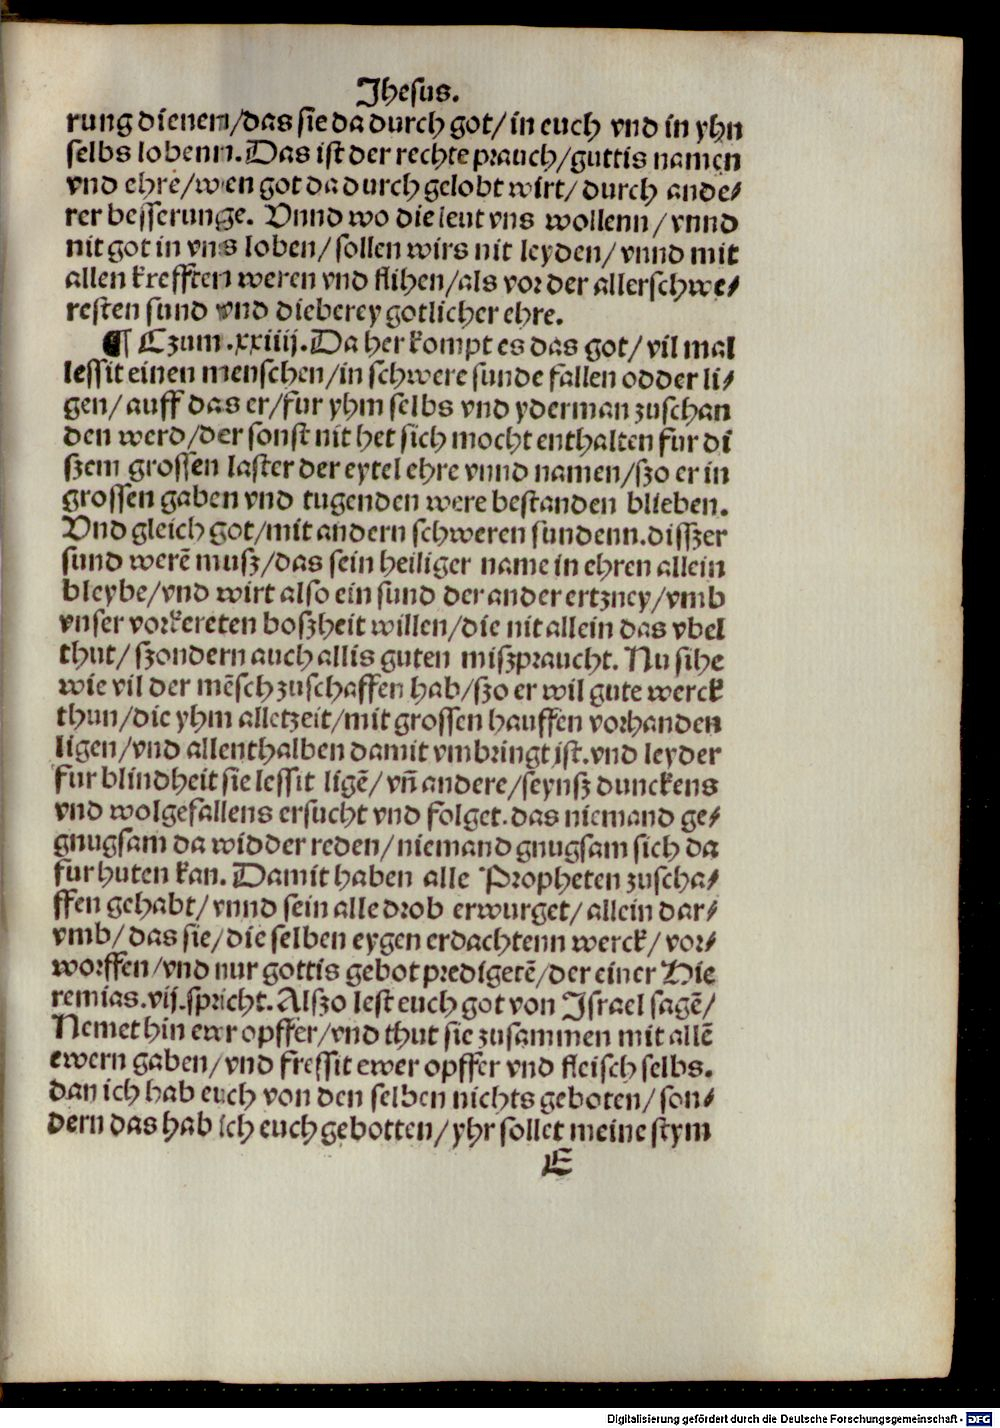 Jhesus.
rung dienen/das sie da durch got/in euch vnd in yhn
selbs lobenn.Das ist der rechte prauch/guttis namen
vnd ehre/wen got da durch gelobt wirt/durch ande⸗
rer besserunge. Vnnd wo die leut vns wollenn/vnnd
nit got in vns loben/sollen wirs nit leyden/vnnd mit
allen krefften weren vnd flihen/als vor der allerschwe⸗
resten sund vnd dieberey gotlicher ehre.
¶ Czum.xxiiij.Da her kompt es das got/vil mal
lessit einen menschen/in schwere sunde fallen odder li⸗
gen/auff das er/fur yhm selbs vnd yderman zuschan
den werd/der sonst nit het sich mocht enthalten fur di
szem grossen laster der eytel ehre vnnd namen/szo er in
grossen gaben vnd tugenden were bestanden blieben.
Vnd gleich got/mit andern schweren sundenn.disszer
sund werē musz/das sein heiliger name in ehren allein
bleybe/vnd wirt also ein sund der ander ertzney/vmb
vnser vorkereten boszheit willen/die nit allein das vbel
thut/szondern auch allis guten miszpraucht. Nu sihe
wie vil der mēsch zuschaffen hab/szo er wil gute werck
thun/die yhm alletzeit/mit grossen hauffen vorhanden
ligen/vnd allenthalben damit vmbringt ist.vnd leyder
fur blindheit sie lessit ligē/vn̄ andere/seynsz dunckens
vnd wolgefallens ersucht vnd folget.das niemand ge⸗
gnugsam da widder reden/niemand gnugsam sich da
fur huten kan.Damit haben alle Propheten zuscha⸗
ffen gehabt/vnnd sein alle drob erwurget/allein dar⸗
vmb/das sie/die selben eygen erdachtenn werck/vor⸗
worffen/vnd nur gottis gebot predigetē/der einer Hie
remias.vij.spricht.Alszo lest euch got von Jsrael sagē/
Nemet hin ewr opffer/vnd thut sie zusammen mit allē
ewern gaben/vnd fressit ewer opffer vnd fleisch selbs.
dan ich hab euch von den selben nichts geboten/son⸗
dern das hab ich euch gebotten/yhr sollet meine stym
E
Digitalisierung gefördert durch die Deutsche Forschungsgemeinschaft - DFG